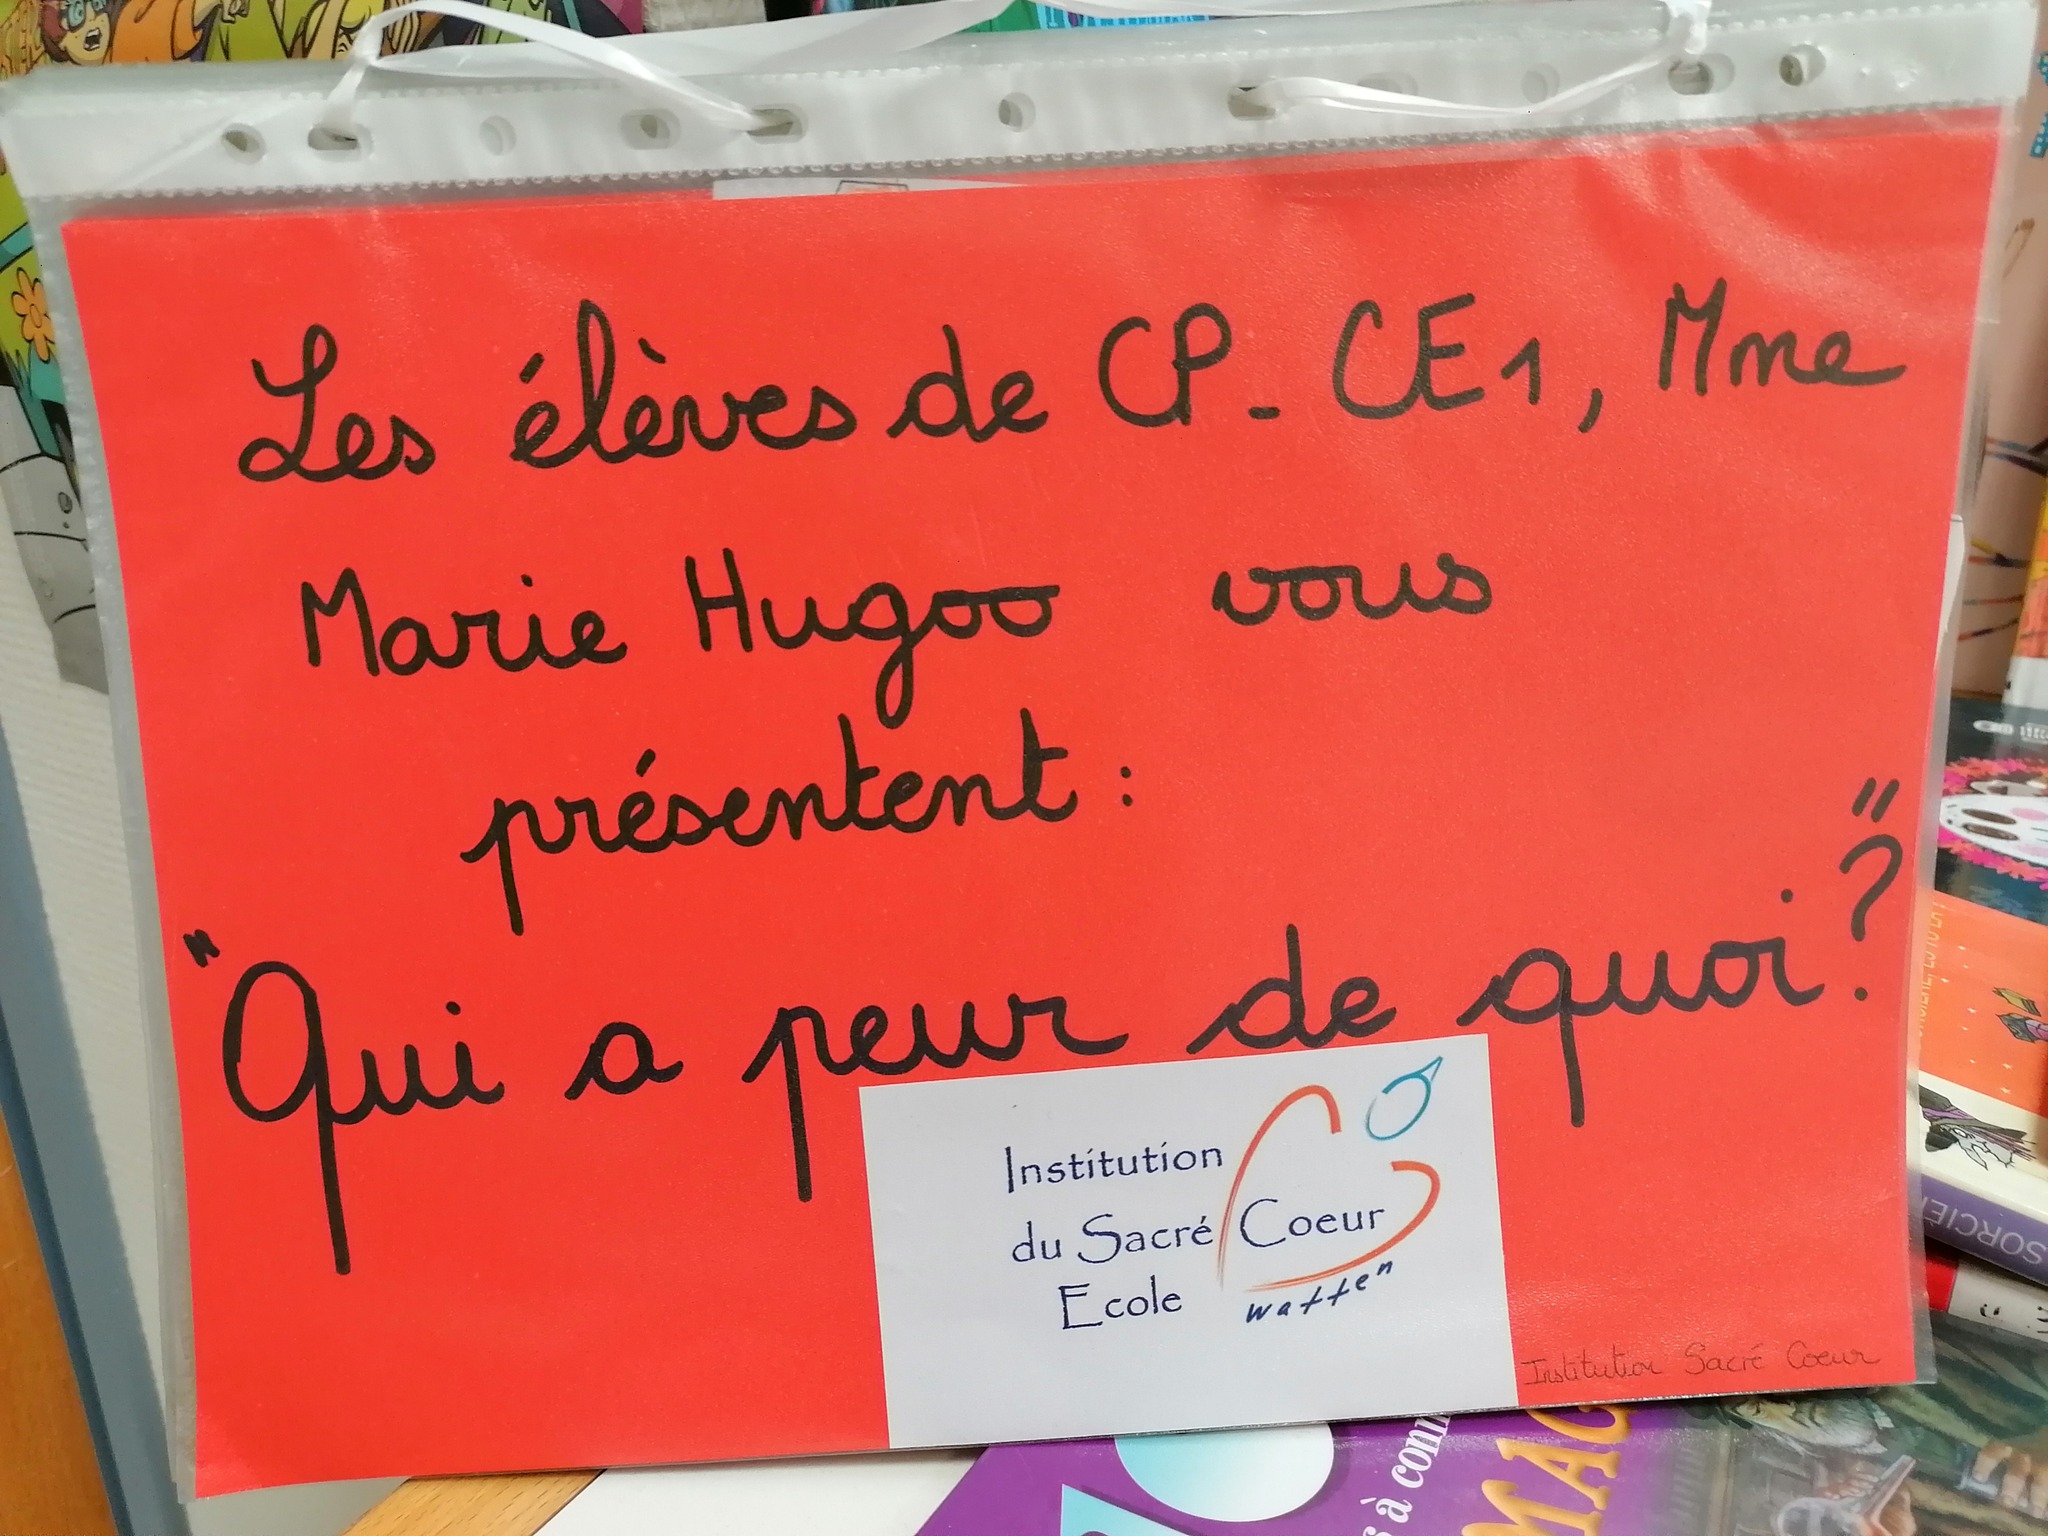 Les élèves de CP-CE1, Mme
Marie Hugoo vous
présentent :
"Qui a peur de quoi ?"
Institution
du Sacré Coeur
Ecole
watten
Institution Sacré Coeur
SORCIÈ
MAG
s à con